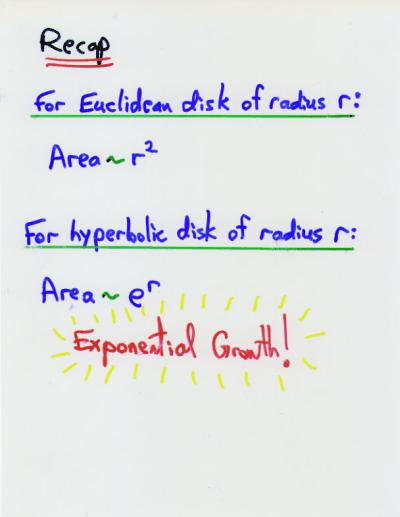 Recap
For Euclidean disk of radius r:
Area ~ r²
For hyperbolic disk of radius r:
Area ~ eʳ
Exponential Growth!